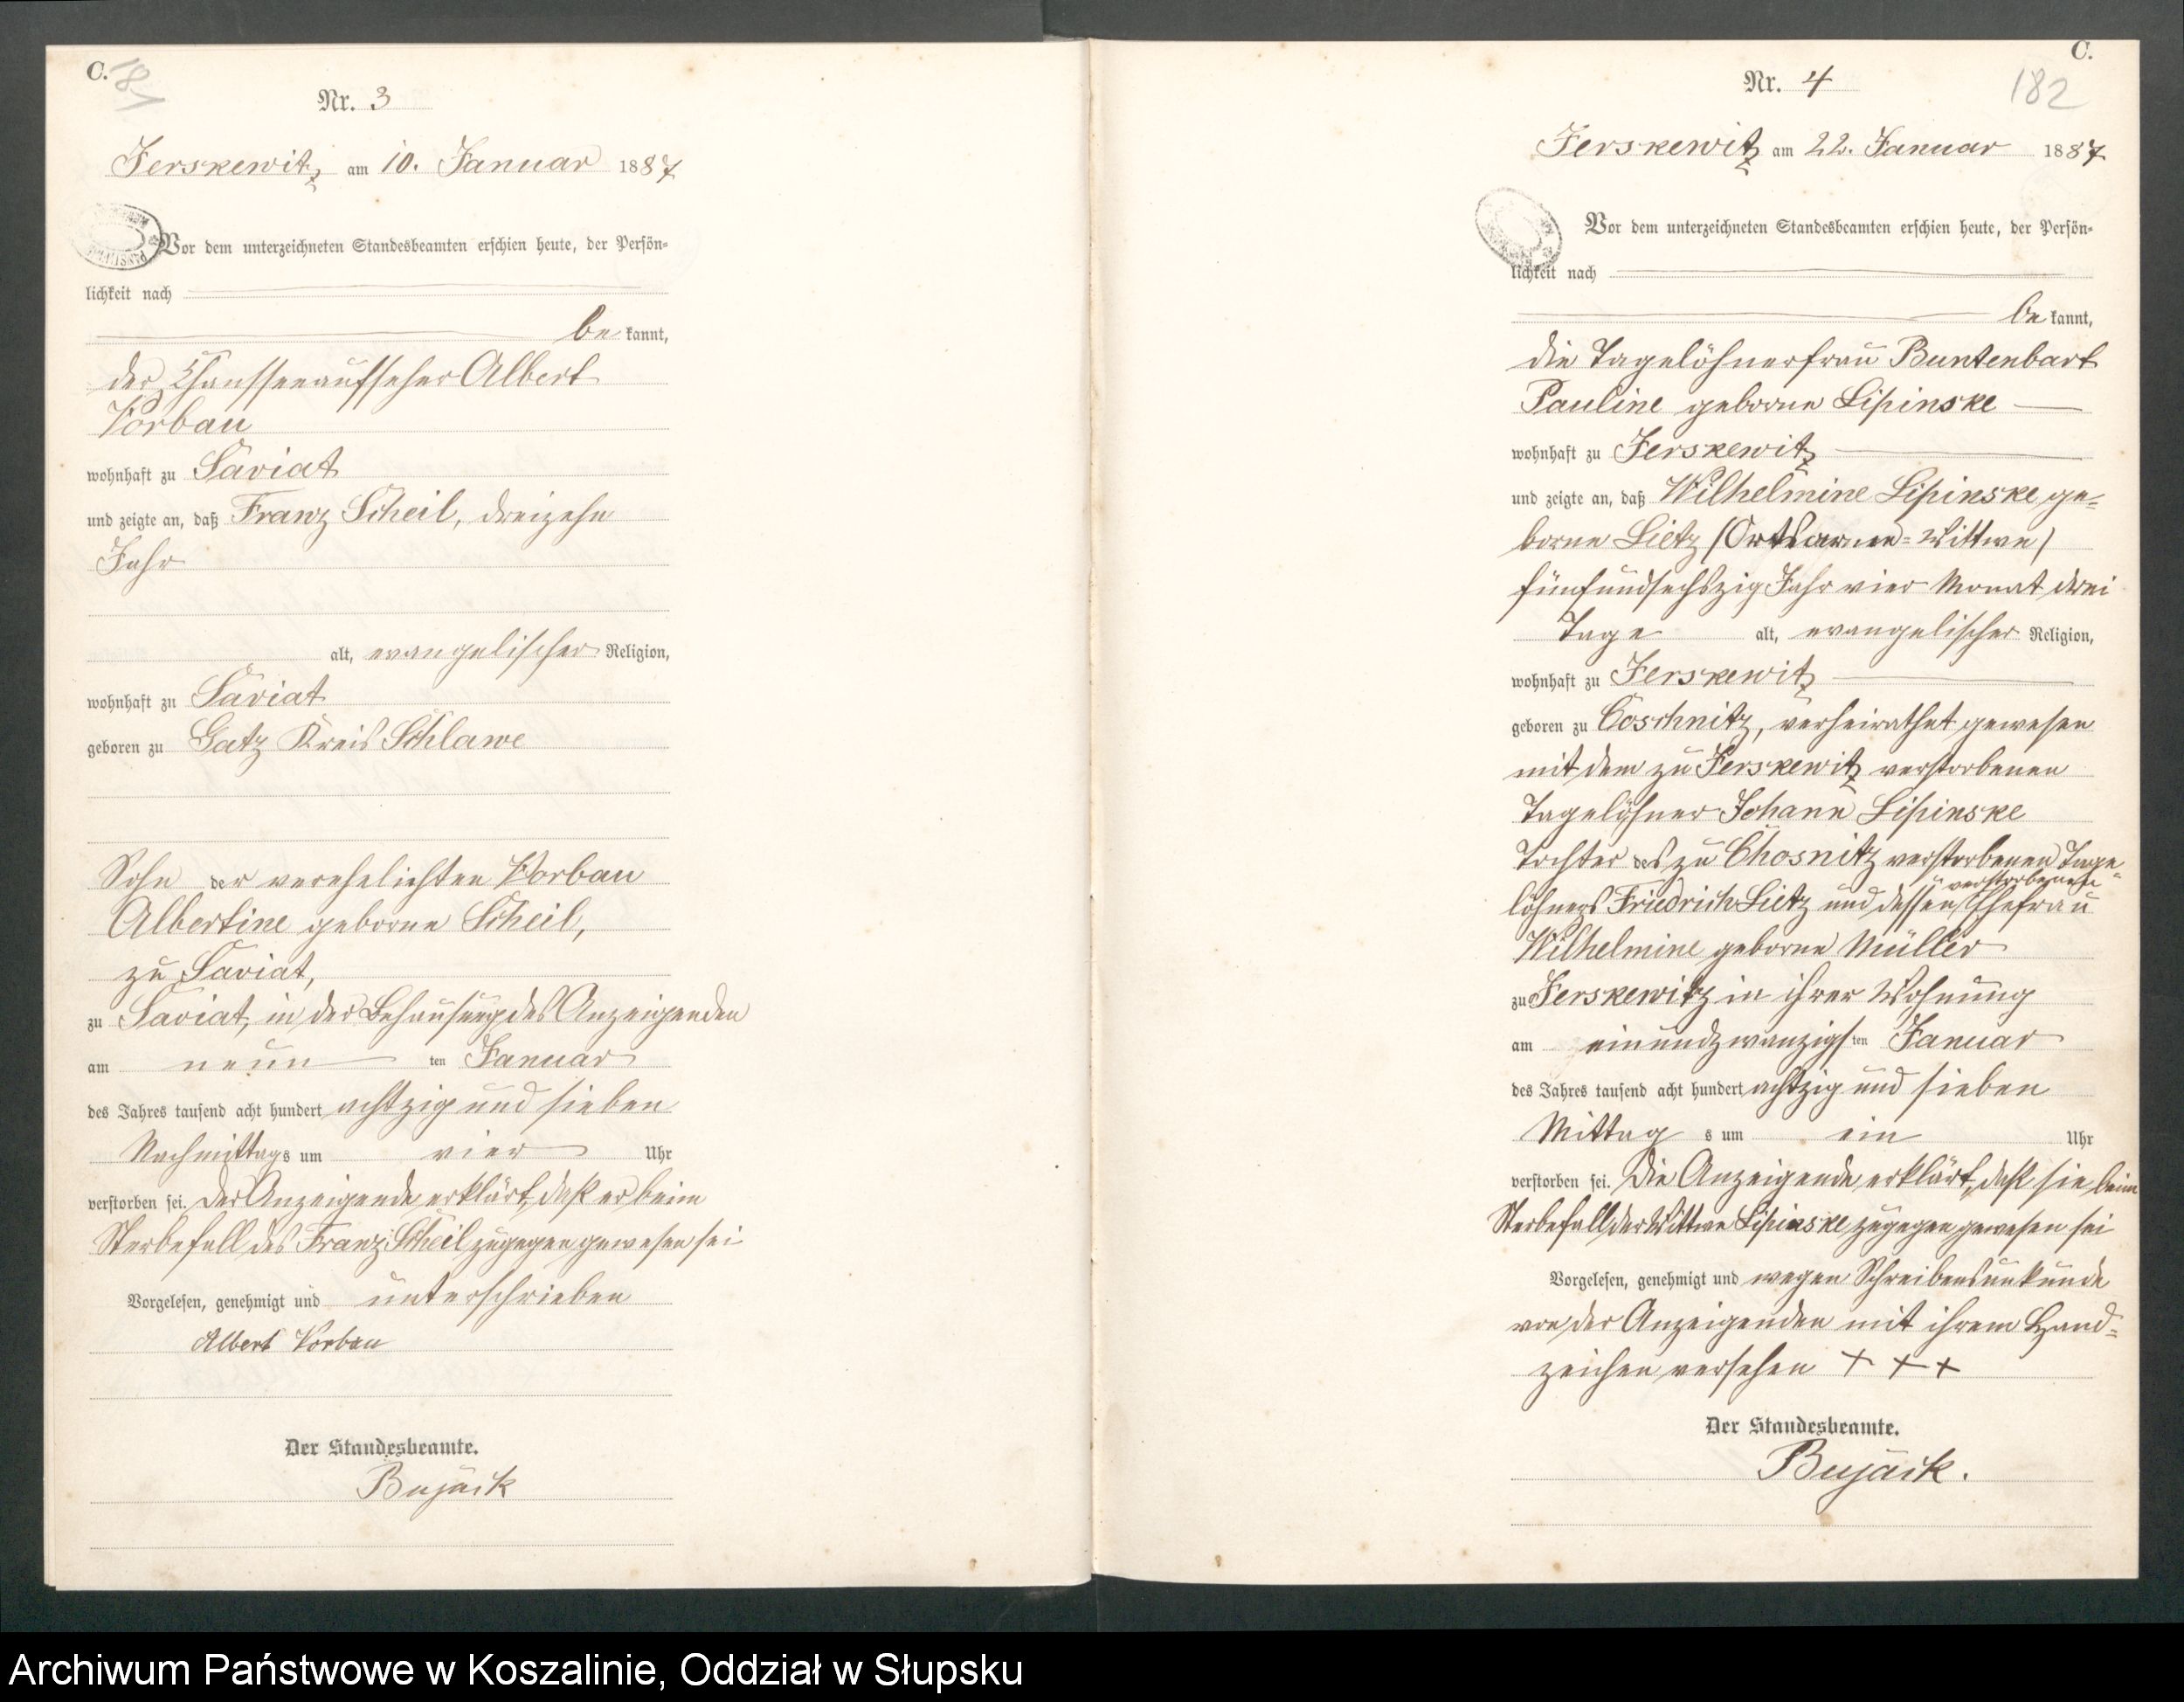 C.
181
Nr. 3
Jerskewitz, am 10. Januar 1887
Vor dem unterzeichneten Standesbeamten erschien heute, der Persön-
lichkeit nach
be kannt,
der Chausseeaufseher Albert
Vorbau
wohnhaft zu Saviat
und zeigte an, daß Franz Scheil, dreizehn
Jahr
alt, evangelischer Religion,
wohnhaft zu Saviat
geboren zu Gatz Kreis Schlawe
Sohn der verehelichten Vorbau
Albertine geborne Scheil,
zu Saviat,
zu Saviat, in der Behausung des Anzeigenden
am neun ten Januar
des Jahres tausend acht hundert achtzig und sieben
Nachmittags um vier Uhr
verstorben sei. Der Anzeigende erklärt, daß er beim
Sterbefall des Franz Scheil zugegen gewesen sei
Vorgelesen, genehmigt und unterschrieben
Albert Vorbau
Der Standesbeamte.
Bujack
C.
182
Nr. 4
Jerskewitz am 22. Januar 1887
Vor dem unterzeichneten Standesbeamten erschien heute, der Persön-
lichkeit nach
be kannt,
die Tagelöhnerfrau Buntenbart
Pauline geborne Lipinske
wohnhaft zu Jerskewitz
und zeigte an, daß Wilhelmine Lipinske ge-
borne Lietz (Ortsarme-Wittwe)
fünfundsechszig Jahr vier Monat drei
Tage alt, evangelischer Religion,
wohnhaft zu Jerskewitz
geboren zu Coschnitz, verheirathet gewesen
mit dem zu Jerskewitz verstorbenen
Tagelöhner Johann Lipinske
Tochter des zu Chosnitz verstorbenen Tage-
löhners Friedrich Lietz und dessen verstorbenen Ehefrau
Wilhelmine geborne Müller
zu Jerskewitz in ihrer Wohnung
am einundzwanzigs ten Januar
des Jahres tausend acht hundert achtzig und sieben
Mittag s um ein Uhr
verstorben sei. Die Anzeigende erklärt, daß sie beim
Sterbefall der Wittwe Lipinske zugegen gewesen sei
Vorgelesen, genehmigt und wegen Schreibensunkunde
von der Anzeigenden mit ihrem Hand-
zeichen versehen + + +
Der Standesbeamte.
Bujack.
Archiwum Państwowe w Koszalinie, Oddział w Słupsku